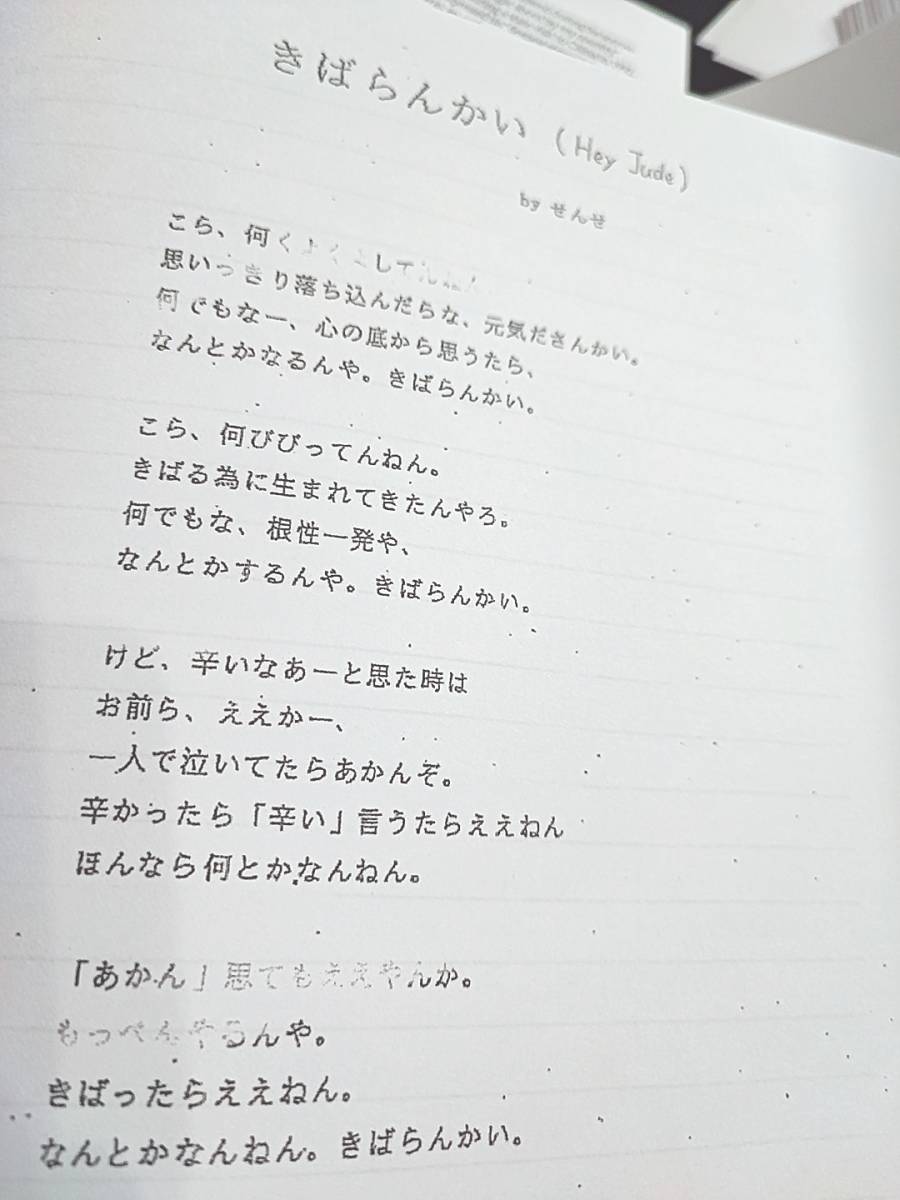 きばらんかい (Hey Jude)
by せんせ
こら、何くよくよしてんねん
思いっきり落ち込んだらな、元気ださんかい。
何でもなー、心の底から思うたら、
なんとかなるんや。きばらんかい。
こら、何びびってんねん。
きばる為に生まれてきたんやろ。
何でもな、根性一発や、
なんとかするんや。きばらんかい。
けど、辛いなあーと思た時は
お前ら、ええかー、
一人で泣いてたらあかんぞ。
辛かったら「辛い」言うたらええねん
ほんなら何とかなんねん。
「あかん」思てもええやんか。
もっぺんやるんや。
きばったらええねん。
なんとかなんねん。きばらんかい。